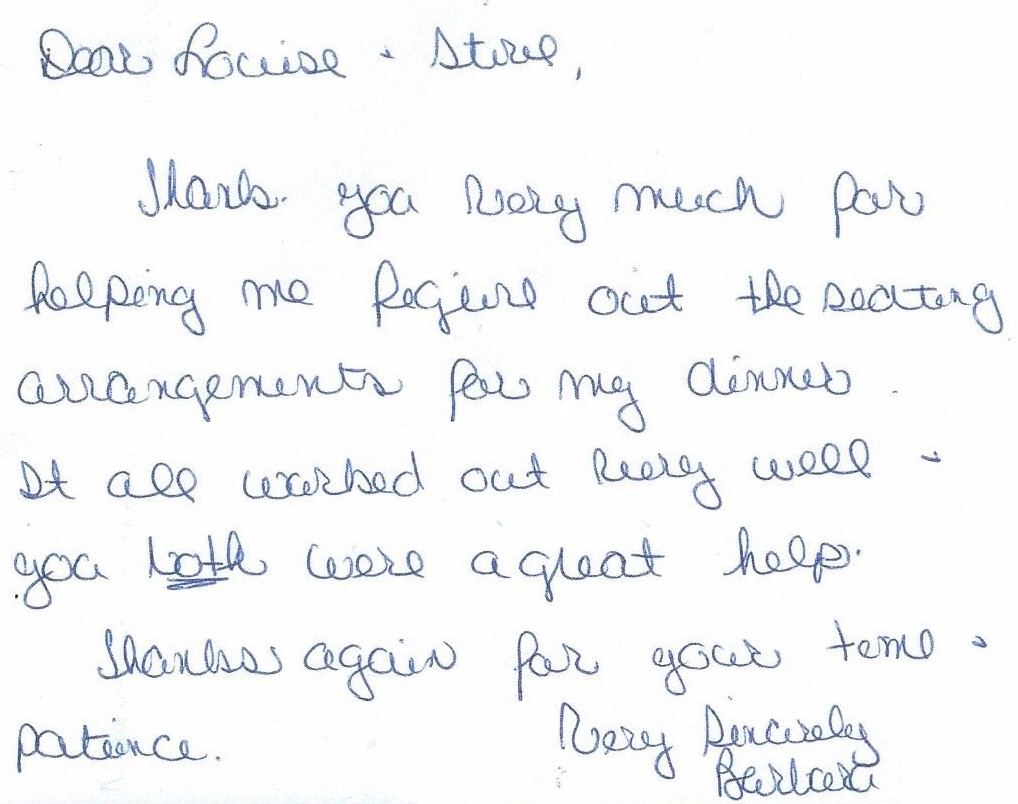 Dear Louise + Steve,
Thank you very much for
helping me figure out the seating
arrangements for my dinner.
It all worked out very well -
you both were a great help.
Thanks again for your time +
patience.
Very Sincerely
Barbara